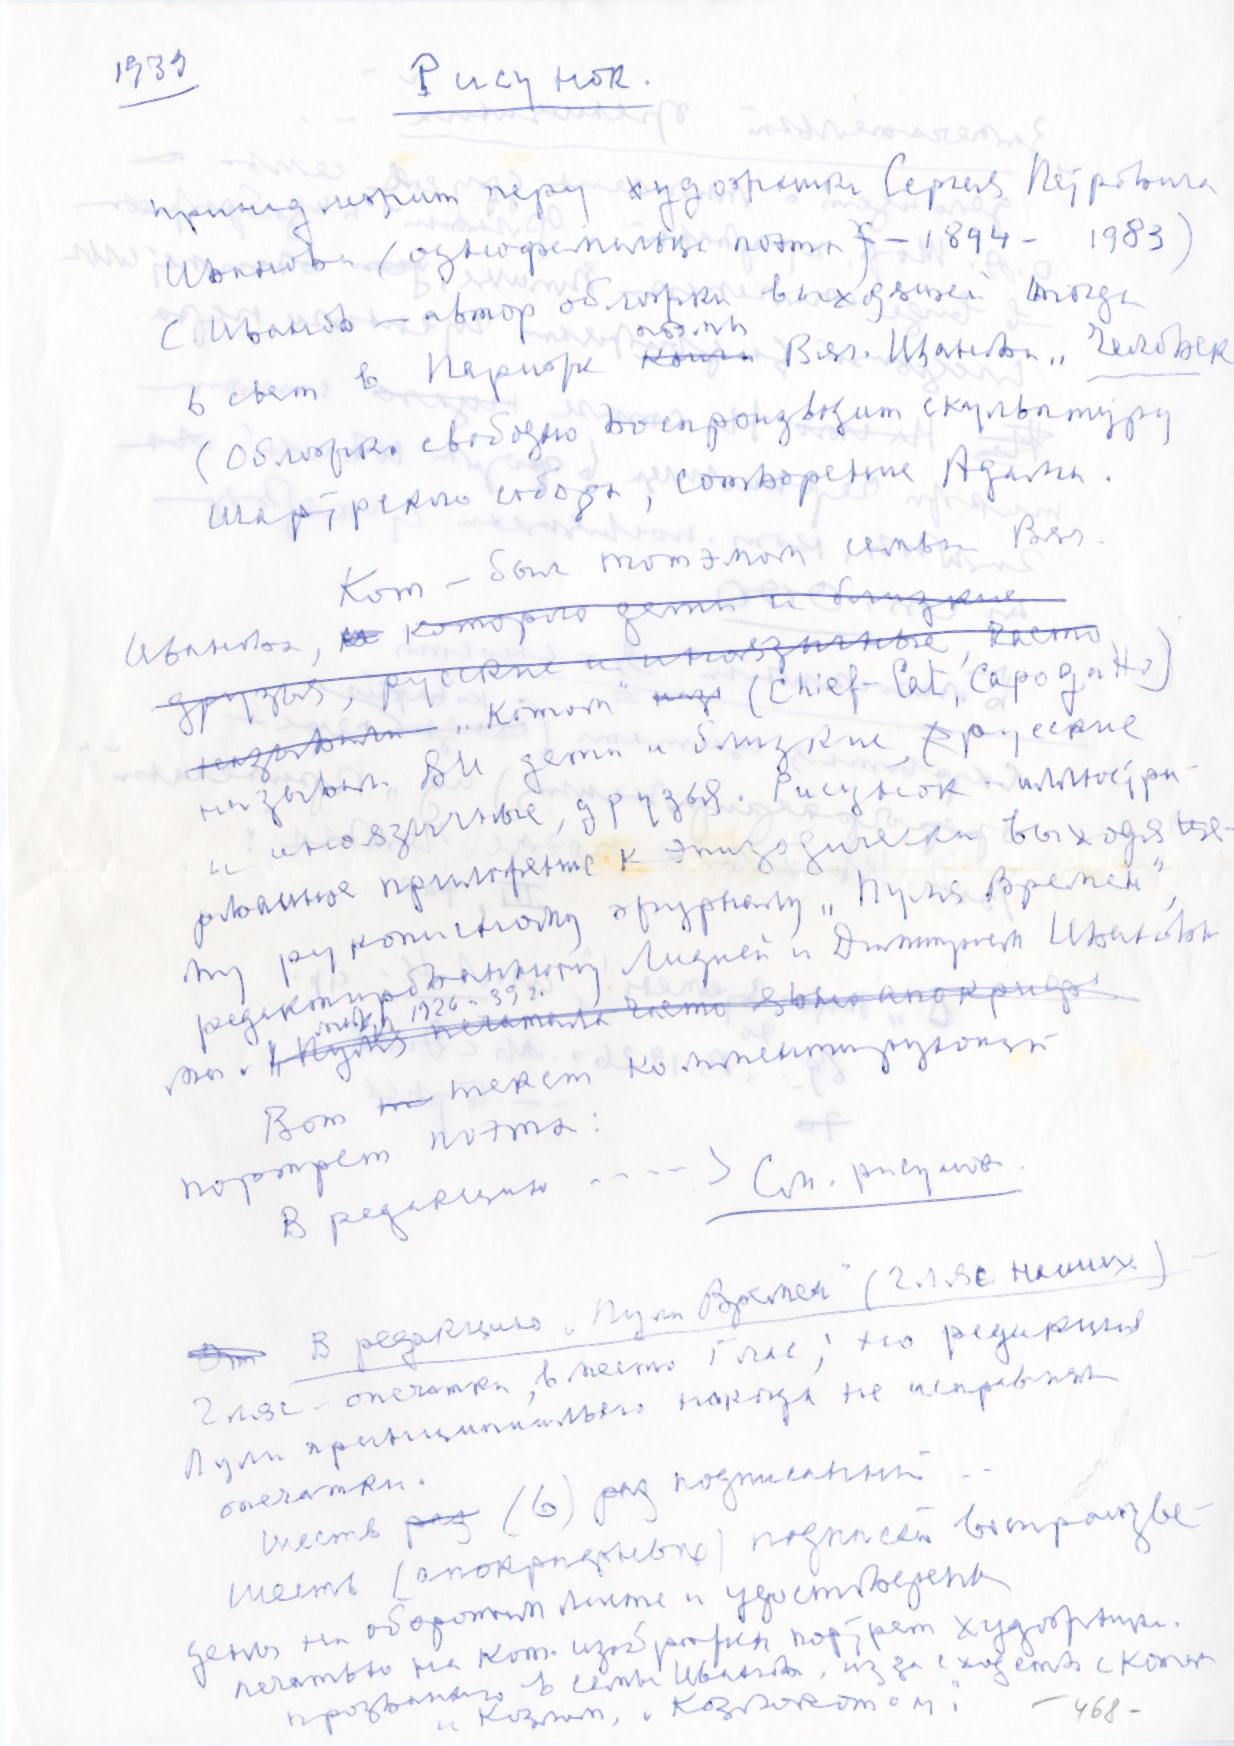 1939
Рисунок.
принадлежит перу художника Сергея Петровича
Иванова (однофамильца поэта) – 1894 – 1983)
С. Иванов – автор обложки выходящей тогда
поэмы
в свет в Париже книги Вяч. Иванова „Человек
(Обложка свободно воспроизводит скульптуру
Шартрского собора, сотворение Адама.
Кот – был тотэмом семьи Вяч.
Иванова, которого дети и близкие
друзья, русские и иноязычные, часто
называли „Котом" (Chief-Cat, Capogatto)
называли ВИ дети и близкие, русские
и иноязычные, друзья. Рисунок – иллюстри-
рованное приложение к эпизодически выходяще-
му рукописному журналу „Пуля Времен",
редактированному Лидией и Димитрием Ивано-
1926 – 39 г.
вым. „Пуля печатала часто апокриф
Вот текст комментирующий
портрет поэта:
В редакцию ----> См. рисунок.
От В редакцию „Пули Времен" (Гляс наших)
Гляс – опечатка, вместо Глас; но редакция
Пули принципиально никогда не исправляла
опечатки.
Шесть раз (6) раз подписанный --
Шесть (апокрифных) подписей воспроизве-
дены на оборотном листе и удостоверены
печатью на кот. изображен портрет художника.
прозванного в семье Иванова, из за сходства с Котом
и Козлом, „Козлокотом":
– 468 –